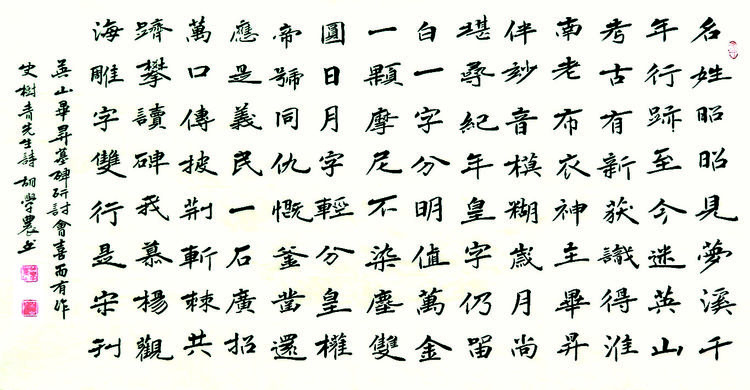 名姓昭昭見夢溪千
年行跡至今迷英山
考古有新获識得淮
南老布衣神主畢昇
伴妙音模糊歲月尚
堪尋紀年皇字仍留
白一字分明值萬金
一顆摩尼不染塵雙
圓日月字輕分皇權
帝號同仇慨釜凿還
應是義民一石廣招
萬口傳披荆斬棘共
躋攀讀碑我慕楊觀
海雕字雙行是宋刊
英山畢昇墓碑研討會喜而有作
史樹青先生詩 胡學農书